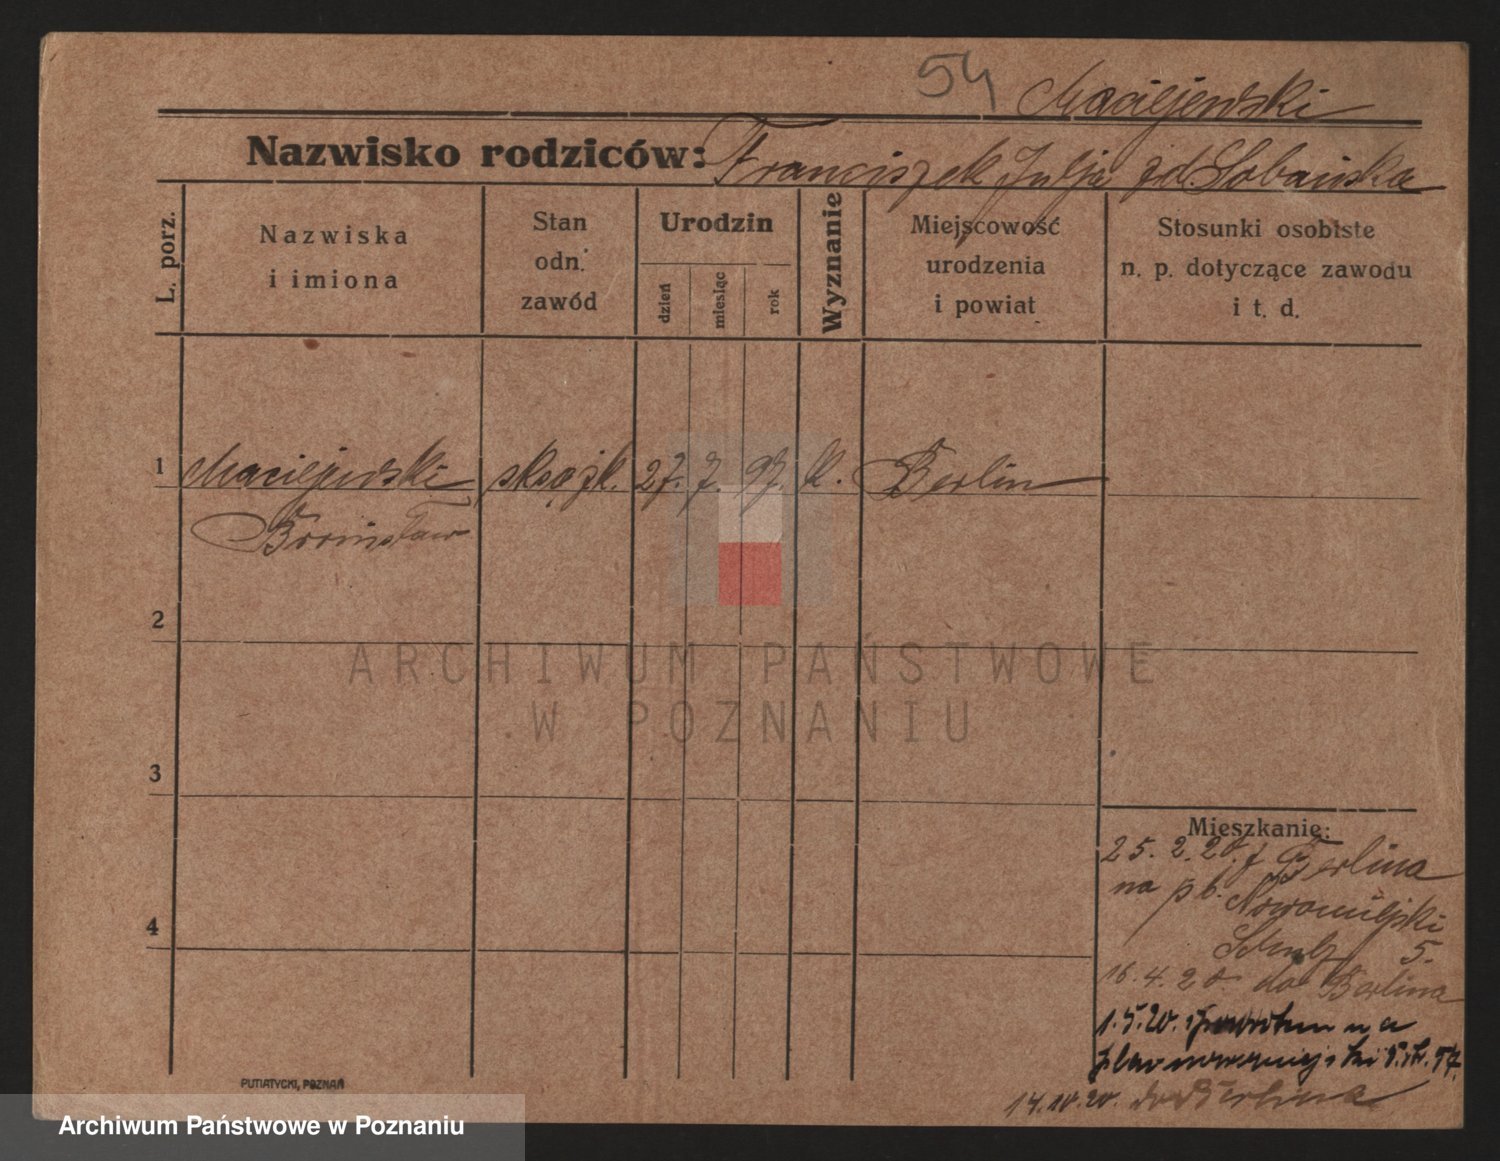 54 Maciejewski
Nazwisko rodziców: Franciszek Julja zd Sobańska
L. porz.
Nazwiska
i imiona
Stan
odn.
zawód
Urodzin
dzień
miesiąc
rok
Wyznanie
Miejscowość
urodzenia
i powiat
Stosunki osobiste
n. p. dotyczące zawodu
i t. d.
1 Maciejewski 27. 7. 97. k. Berlin
Bronisław
2
ARCHIWUM PAŃSTWOWE
W POZNANIU
3
Mieszkanie:
25. 2. 20. z Berlina
na pb. Nowomiejski
5.
4
16. 4. 20. do Berlina
1. 5. 20. na
14. 10. 20. do Berlina
PUTIATYCKI, POZNAŃ
Archiwum Państwowe w Poznaniu